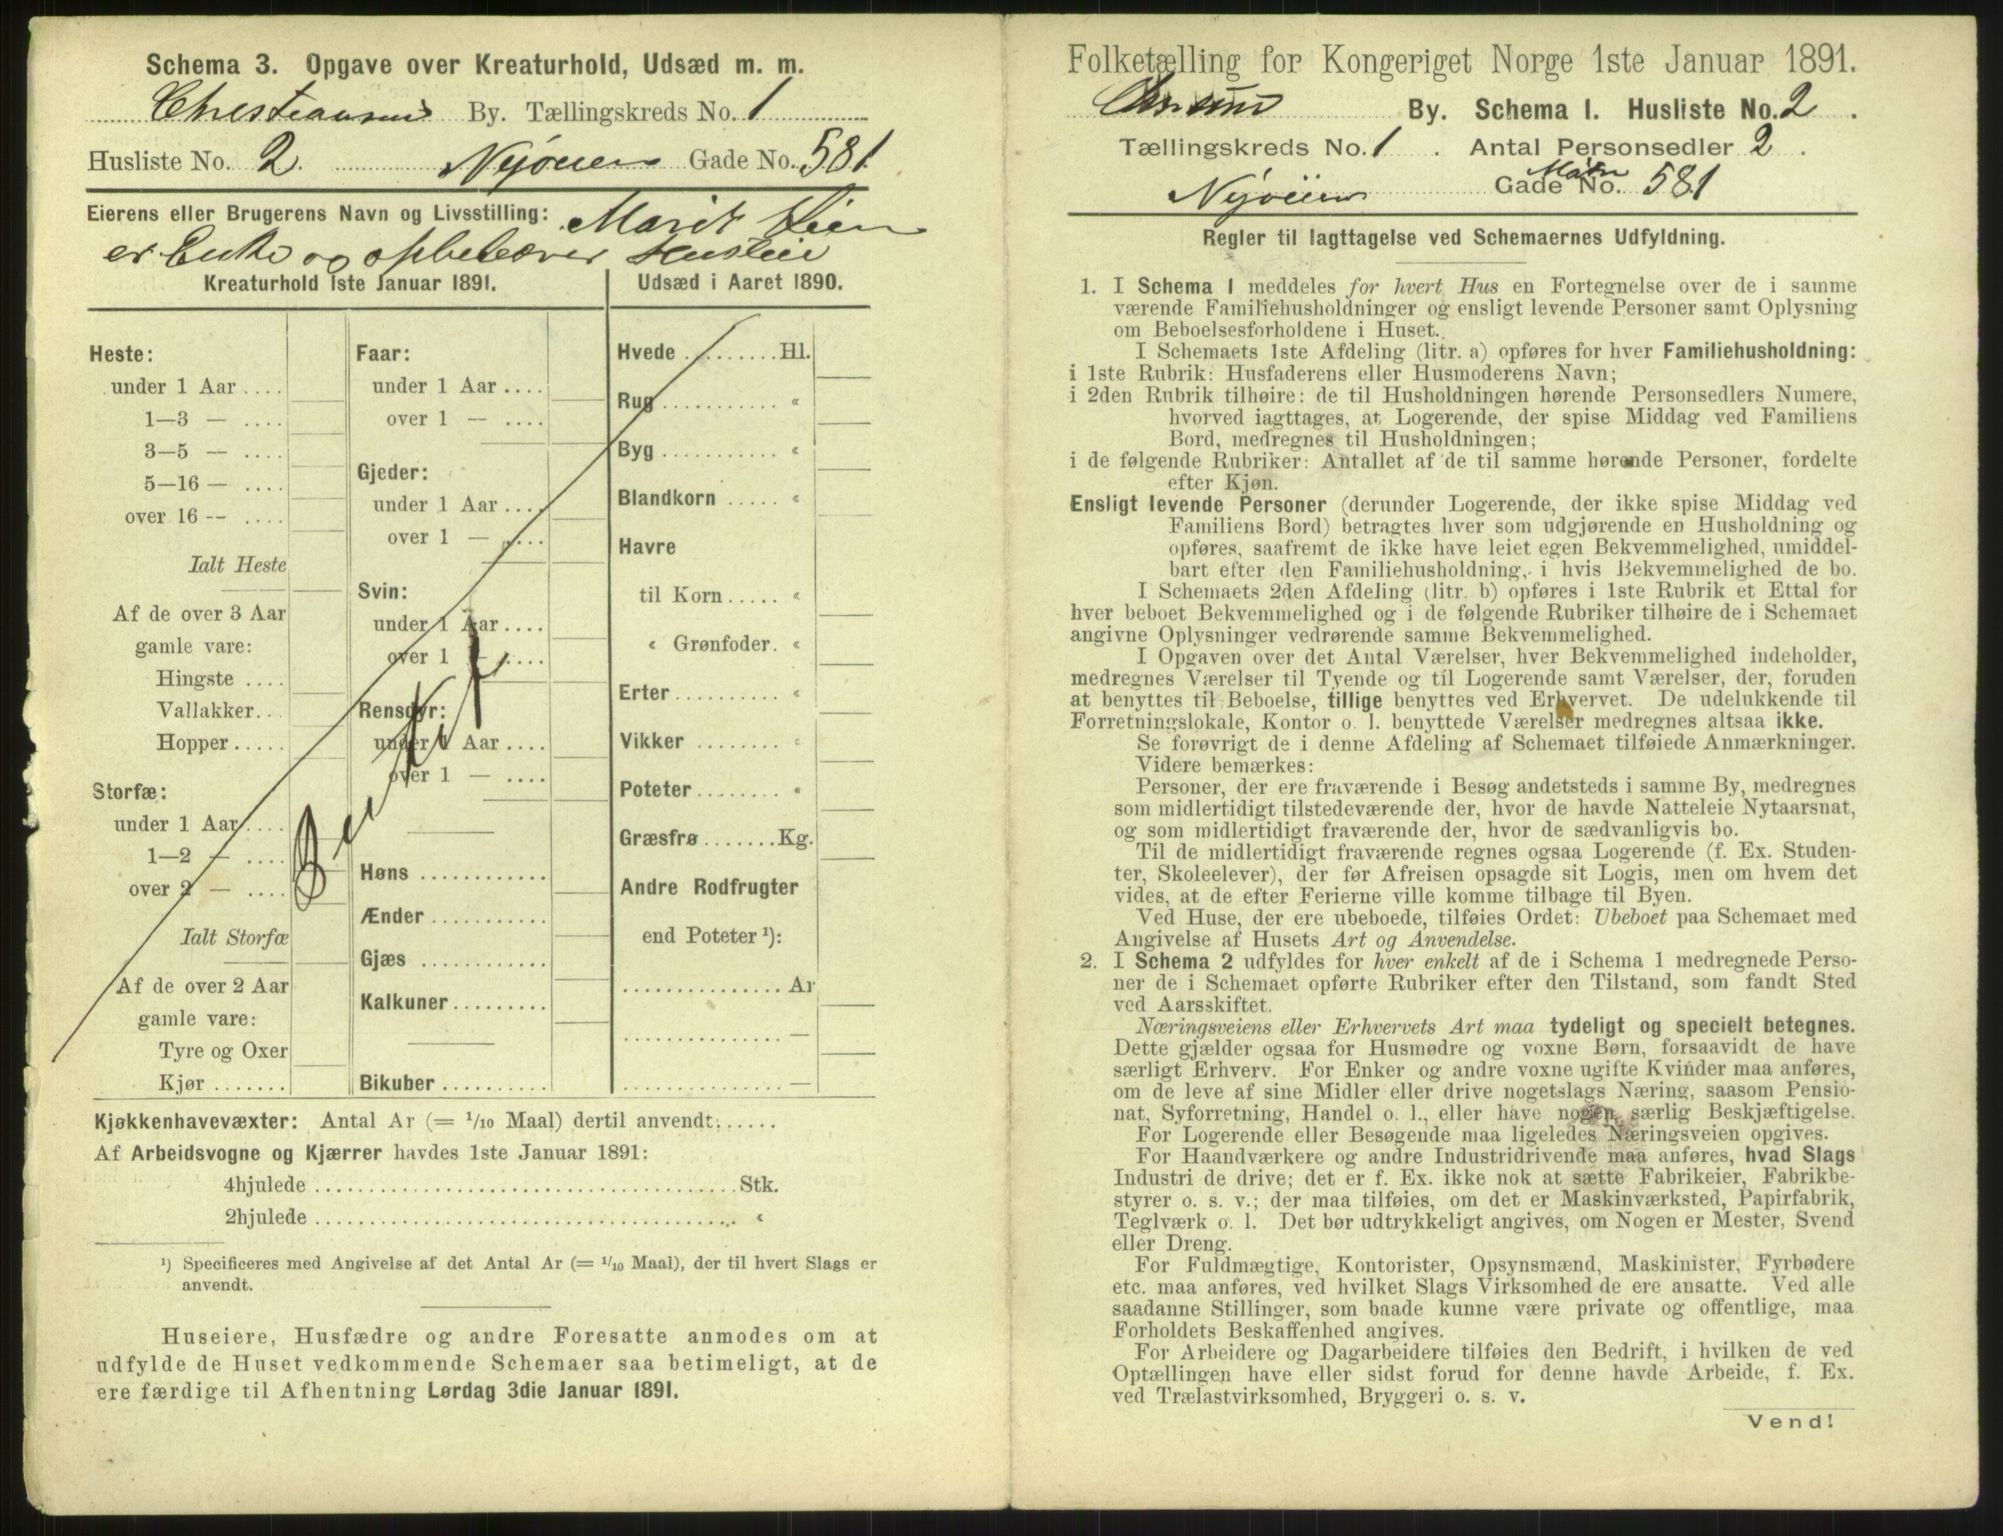 Schema 3. Opgave over Kreaturhold, Udsæd m. m.
Christiansund By. Tællingskreds No. 1
Husliste No. 2 Nyveien Gade No. 581
Eierens eller Brugerens Navn og Livsstilling: Marit Lien
er Enke og oppebærer Husleie
Kreaturhold 1ste Januar 1891.
Heste:
under 1 Aar ....
1—3 — ....
3—5 — ....
5—16 — ....
over 16 -- ....
Ialt Heste
Af de over 3 Aar
gamle vare:
Hingste ....
Vallakker...
Hopper .....
Storfæ:
under 1 Aar ....
1—2 — ....
over 2 — ....
Ialt Storfæ
Af de over 2 Aar
gamle vare:
Tyre og Oxer
Kjør .......
Faar:
under 1 Aar ....
over 1 — ....
Gjeder:
under 1 Aar ....
over 1 — ....
Svin:
under 1 Aar ....
over 1 — ....
Rensdyr:
under 1 Aar ....
over 1 — ....
Høns ...........
Ænder ..........
Gjæs ...........
Kalkuner ........
Bikuber .........
Udsæd i Aaret 1890.
Hvede .......... Hl.
Rug ........... «
Byg ........... «
Blandkorn ..... «
Havre
til Korn ..... «
« Grønfoder. «
Erter .......... «
Vikker ......... «
Poteter ........ «
Græsfrø ....... Kg.
Andre Rodfrugter
end Poteter ¹):
............... Ar
............... —
............... —
Kjøkkenhavevæxter: Antal Ar (= 1/10 Maal) dertil anvendt......
Af Arbeidsvogne og Kjærrer havdes 1ste Januar 1891:
4hjulede ........................................ Stk.
2hjulede ........................................ «
¹) Specificeres med Angivelse af det Antal Ar (= 1/10 Maal), der til hvert Slags er
anvendt.
Huseiere, Husfædre og andre Foresatte anmodes om at
udfylde de Huset vedkommende Schemaer saa betimeligt, at de
ere færdige til Afhentning Lørdag 3die Januar 1891.
Folketælling for Kongeriget Norge 1ste Januar 1891.
By. Schema I. Husliste No. 2 .
Tællingskreds No. 1 . Antal Personsedler 2 .
Nyveien Gade No. Matr 581
Regler til Iagttagelse ved Schemaernes Udfyldning.
1. I Schema 1 meddeles for hvert Hus en Fortegnelse over de i samme
værende Familiehusholdninger og ensligt levende Personer samt Oplysning
om Beboelsesforholdene i Huset.
I Schemaets 1ste Afdeling (litr. a) opføres for hver Familiehusholdning:
i 1ste Rubrik: Husfaderens eller Husmoderens Navn;
i 2den Rubrik tilhøire: de til Husholdningen hørende Personsedlers Numere,
hvorved iagttages, at Logerende, der spise Middag ved Familiens
Bord, medregnes til Husholdningen;
i de følgende Rubriker: Antallet af de til samme hørende Personer, fordelte
efter Kjøn.
Ensligt levende Personer (derunder Logerende, der ikke spise Middag ved
Familiens Bord) betragtes hver som udgjørende en Husholdning og
opføres, saafremt de ikke have leiet egen Bekvemmelighed, umiddel-
bart efter den Familiehusholdning, i hvis Bekvemmelighed de bo.
I Schemaets 2den Afdeling (litr. b) opføres i 1ste Rubrik et Ettal for
hver beboet Bekvemmelighed og i de følgende Rubriker tilhøire de i Schemaet
angivne Oplysninger vedrørende samme Bekvemmelighed.
I Opgaven over det Antal Værelser, hver Bekvemmelighed indeholder,
medregnes Værelser til Tyende og til Logerende samt Værelser, der, foruden
at benyttes til Beboelse, tillige benyttes ved Erhvervet. De udelukkende til
Forretningslokale, Kontor o. l. benyttede Værelser medregnes altsaa ikke.
Se forøvrigt de i denne Afdeling af Schemaet tilføiede Anmærkninger.
Videre bemærkes:
Personer, der ere fraværende i Besøg andetsteds i samme By, medregnes
som midlertidigt tilstedeværende der, hvor de havde Natteleie Nytaarsnat,
og som midlertidigt fraværende der, hvor de sædvanligvis bo.
Til de midlertidigt fraværende regnes ogsaa Logerende (f. Ex. Studen-
ter, Skoleelever), der før Afreisen opsagde sit Logis, men om hvem det
vides, at de efter Ferierne ville komme tilbage til Byen.
Ved Huse, der ere ubeboede, tilføies Ordet: Ubeboet paa Schemaet med
Angivelse af Husets Art og Anvendelse.
2. I Schema 2 udfyldes for hver enkelt af de i Schema 1 medregnede Perso-
ner de i Schemaet opførte Rubriker efter den Tilstand, som fandt Sted
ved Aarsskiftet.
Næringsveiens eller Erhvervets Art maa tydeligt og specielt betegnes.
Dette gjælder ogsaa for Husmødre og voxne Børn, forsaavidt de have
særligt Erhverv. For Enker og andre voxne ugifte Kvinder maa anføres,
om de leve af sine Midler eller drive nogetslags Næring, saasom Pensio-
nat, Syforretning, Handel o. l., eller have nogen særlig Beskjæftigelse.
For Logerende eller Besøgende maa ligeledes Næringsveien opgives.
For Haandværkere og andre Industridrivende maa anføres, hvad Slags
Industri de drive; det er f. Ex. ikke nok at sætte Fabrikeier, Fabrikbe-
styrer o. s. v.; der maa tilføies, om det er Maskinværksted, Papirfabrik,
Teglværk o. l. Det bør udtrykkeligt angives, om Nogen er Mester, Svend
eller Dreng.
For Fuldmægtige, Kontorister, Opsynsmænd, Maskinister, Fyrbødere
etc. maa anføres, ved hvilket Slags Virksomhed de ere ansatte. Ved alle
saadanne Stillinger, som baade kunne være private og offentlige, maa
Forholdets Beskaffenhed angives.
For Arbeidere og Dagarbeidere tilføies den Bedrift, i hvilken de ved
Optællingen have eller sidst forud for denne havde Arbeide, f. Ex.
ved Trælastvirksomhed, Bryggeri o. s. v.
Vend!